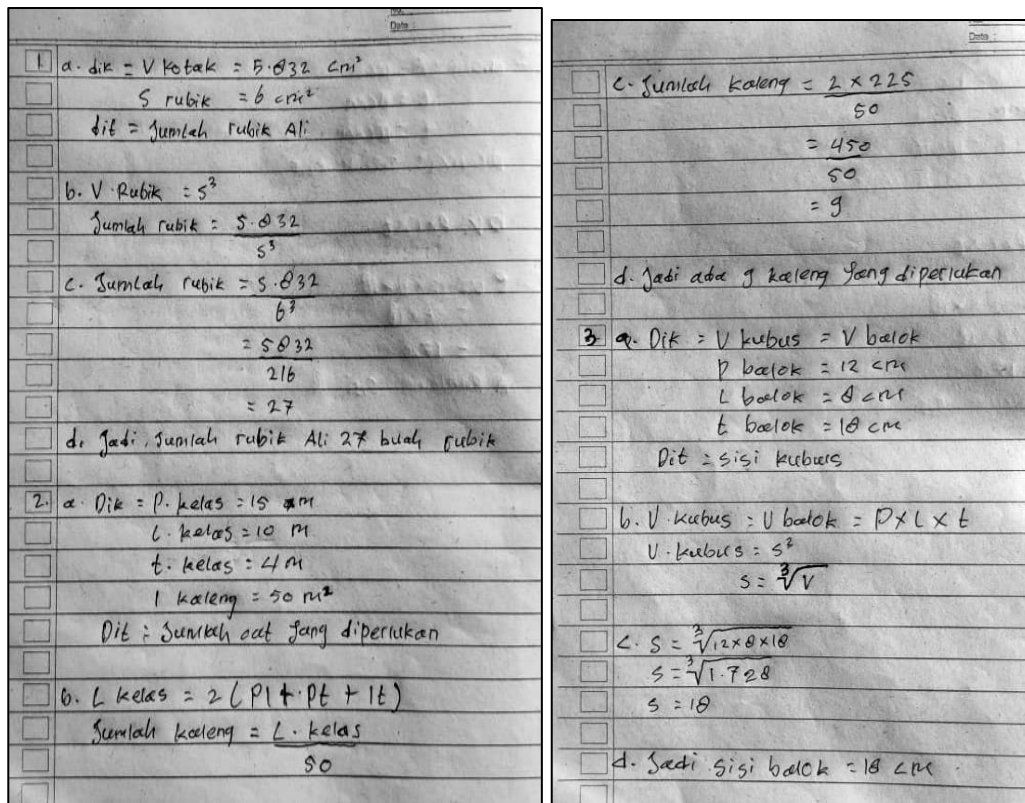 Date :
1. a. dik = V kotak = 5.832 cm²
S rubik = 6 cm²
dit = Jumlah rubik Ali
b. V. Rubik = s³
Jumlah rubik = 5.832
s³
c. Jumlah rubik = 5.832
6³
= 5832
216
= 27
d. Jadi, Jumlah rubik Ali 27 buah rubik
2. a. Dik = P. kelas = 15 m
l. kelas = 10 m
t. kelas = 4 m
1 kaleng = 50 m²
Dit : Jumlah cat yang diperlukan
b. L kelas = 2 (Pl + Pt + lt)
Jumlah kaleng = L. kelas
50
Date :
c. Jumlah kaleng = 2 x 225
50
= 450
50
= 9
d. Jadi ada 9 kaleng yang diperlukan
3. a. Dik = V kubus = V balok
P balok = 12 cm
L balok = 8 cm
t balok = 18 cm
Dit = sisi kubus
b. V. kubus = V balok = P x L x t
V. kubus = s²
s = ³√V
c. s = ³√12x8x18
s = ³√1.728
s = 18
d. Jadi sisi balok = 18 cm